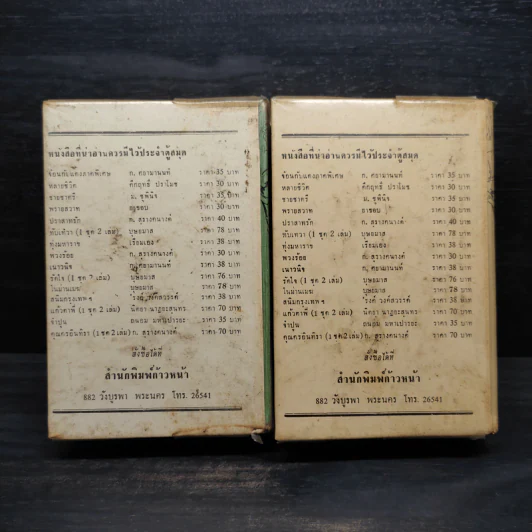 หนังสือที่น่าอ่านควรมีไว้ประจำตู้สมุด
ซ้อนกลิ่นแดงภาคพิเศษ ก. ศยามานนท์ ราคา 35 บาท
หลายชีวิต คึกฤทธิ์ ปราโมช ราคา 30 บาท
ชายชาตรี ม. ชูพินิจ ราคา 35 บาท
พรายสวาท อายชอบ ราคา 30 บาท
ปราสาทรัก ก. สุรางคนางค์ ราคา 40 บาท
ทับเทวา (1 ชุด 2 เล่ม) บุษยมาส ราคา 78 บาท
ทุ่งมหาราช เรียมเอง ราคา 38 บาท
พวงร้อย ก. สุรางคนางค์ ราคา 30 บาท
เนาวนิจ ก. ศยามานนท์ ราคา 38 บาท
รัดใจ (1 ชุด 2 เล่ม) บุษยมาส ราคา 76 บาท
ในม่านเมฆ บุษยมาส ราคา 78 บาท
สนิมกรุงเทพ ฯ 'รงค์ วงศ์สวรรค์ ราคา 38 บาท
แก้วตาพี่ (1 ชุด 2 เล่ม) นิตยา นาฏยะสุนทร ราคา 70 บาท
จำปูน ถนอม มหาเปารยะ ราคา 35 บาท
คุณครูอินทิรา (1 ชุด 2 เล่ม) ก. สุรางคนางค์ ราคา 70 บาท
สั่งซื้อได้ที่
สำนักพิมพ์ก้าวหน้า
882 วังบูรพา พระนคร โทร. 26541
หนังสือที่น่าอ่านควรมีไว้ประจำตู้สมุด
ซ้อนกลิ่นแดงภาคพิเศษ ก. ศยามานนท์ ราคา 35 บาท
หลายชีวิต คึกฤทธิ์ ปราโมช ราคา 30 บาท
ชายชาตรี ม. ชูพินิจ ราคา 35 บาท
พรายสวาท อายชอบ ราคา 30 บาท
ปราสาทรัก ก. สุรางคนางค์ ราคา 40 บาท
ทับเทวา (1 ชุด 2 เล่ม) บุษยมาส ราคา 78 บาท
ทุ่งมหาราช เรียมเอง ราคา 38 บาท
พวงร้อย ก. สุรางคนางค์ ราคา 30 บาท
เนาวนิจ ก. ศยามานนท์ ราคา 38 บาท
รัดใจ (1 ชุด 2 เล่ม) บุษยมาส ราคา 76 บาท
ในม่านเมฆ บุษยมาส ราคา 78 บาท
สนิมกรุงเทพ ฯ 'รงค์ วงศ์สวรรค์ ราคา 38 บาท
แก้วตาพี่ (1 ชุด 2 เล่ม) นิตยา นาฏยะสุนทร ราคา 70 บาท
จำปูน ถนอม มหาเปารยะ ราคา 35 บาท
คุณครูอินทิรา (1 ชุด 2 เล่ม) ก. สุรางคนางค์ ราคา 70 บาท
สั่งซื้อได้ที่
สำนักพิมพ์ก้าวหน้า
882 วังบูรพา พระนคร โทร. 26541